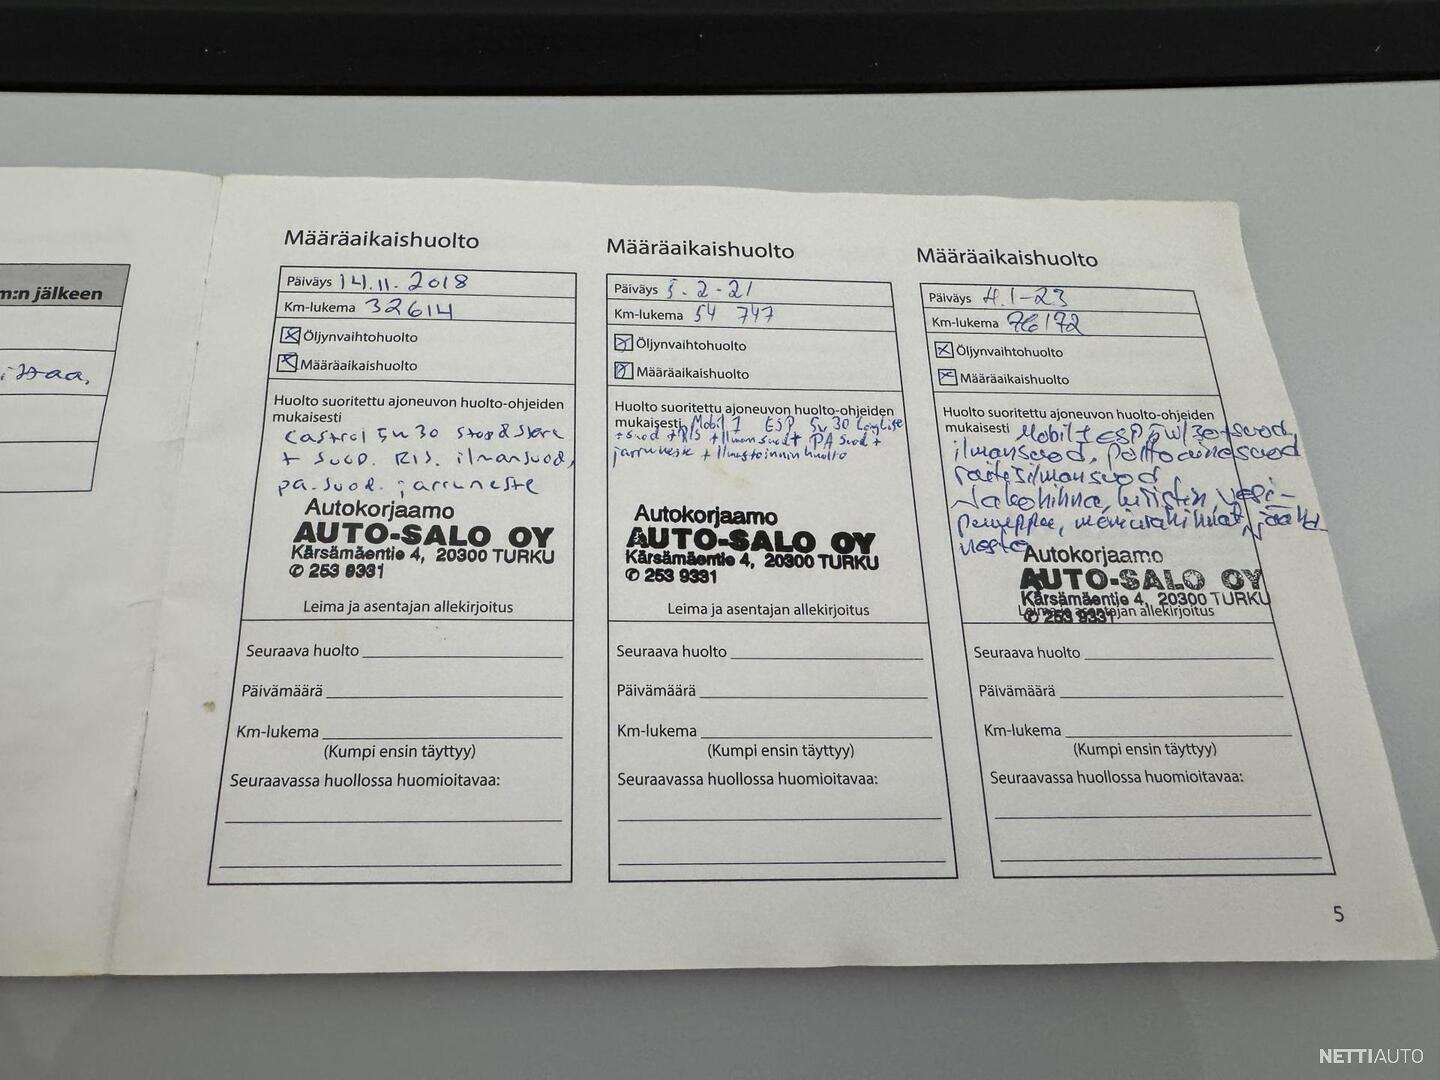 m:n jälkeen
Määräaikaishuolto
Päiväys 14.11.2018
Km-lukema 32614
Öljynvaihtohuolto
Määräaikaishuolto
Huolto suoritettu ajoneuvon huolto-ohjeiden
mukaisesti
Castrol 5w30 stop&start
+ suod. RIS. ilmansuod,
pa.suod. jarruneste
Autokorjaamo
AUTO-SALO OY
Kärsämäentie 4, 20300 TURKU
✆ 253 9331
Leima ja asentajan allekirjoitus
Seuraava huolto
Päivämäärä
Km-lukema
(Kumpi ensin täyttyy)
Seuraavassa huollossa huomioitavaa:
Määräaikaishuolto
Päiväys 5-2-21
Km-lukema 54 747
Öljynvaihtohuolto
Määräaikaishuolto
Huolto suoritettu ajoneuvon huolto-ohjeiden
mukaisesti Mobil 1 ESP 5w30 Longlife
+suod +RIS +Ilmansuod+ PA suod +
jarruneste + Ilmastoinnin huolto
Autokorjaamo
AUTO-SALO OY
Kärsämäentie 4, 20300 TURKU
✆ 253 9331
Leima ja asentajan allekirjoitus
Seuraava huolto
Päivämäärä
Km-lukema
(Kumpi ensin täyttyy)
Seuraavassa huollossa huomioitavaa:
Määräaikaishuolto
Päiväys 4.1-23
Km-lukema 76172
Öljynvaihtohuolto
Määräaikaishuolto
Huolto suoritettu ajoneuvon huolto-ohjeiden
mukaisesti Mobil 1 ESP 5W/30+suod,
ilmansuod, polttoainesuod
raitisilmansuod
Jakohihna, kiristin, vesi-
pumppu, moniurahihnat, jäähd.
neste
Autokorjaamo
AUTO-SALO OY
Kärsämäentie 4, 20300 TURKU
Leima ja asentajan allekirjoitus
✆ 253 9331
Seuraava huolto
Päivämäärä
Km-lukema
(Kumpi ensin täyttyy)
Seuraavassa huollossa huomioitavaa:
5
NETTIAUTO